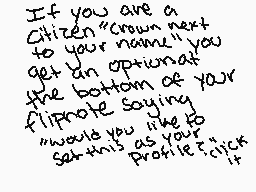 If you are a
citizen "crown next
to your name" you
get an option at
the bottom of your
flipnote saying
"would you like to
set this as your
profile?" click
it